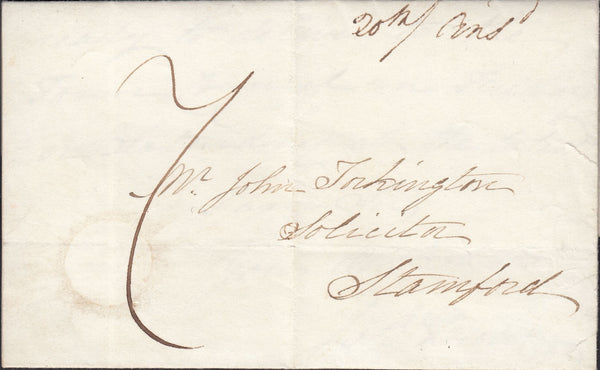 20th / Ansd
7
Mr. John Torkington
Solicitor
Stamford